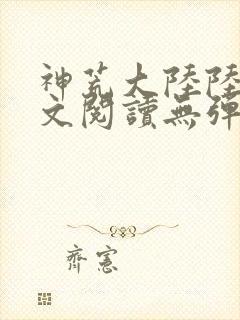 神荒大陸陸
文閱讀無彈
齊憲